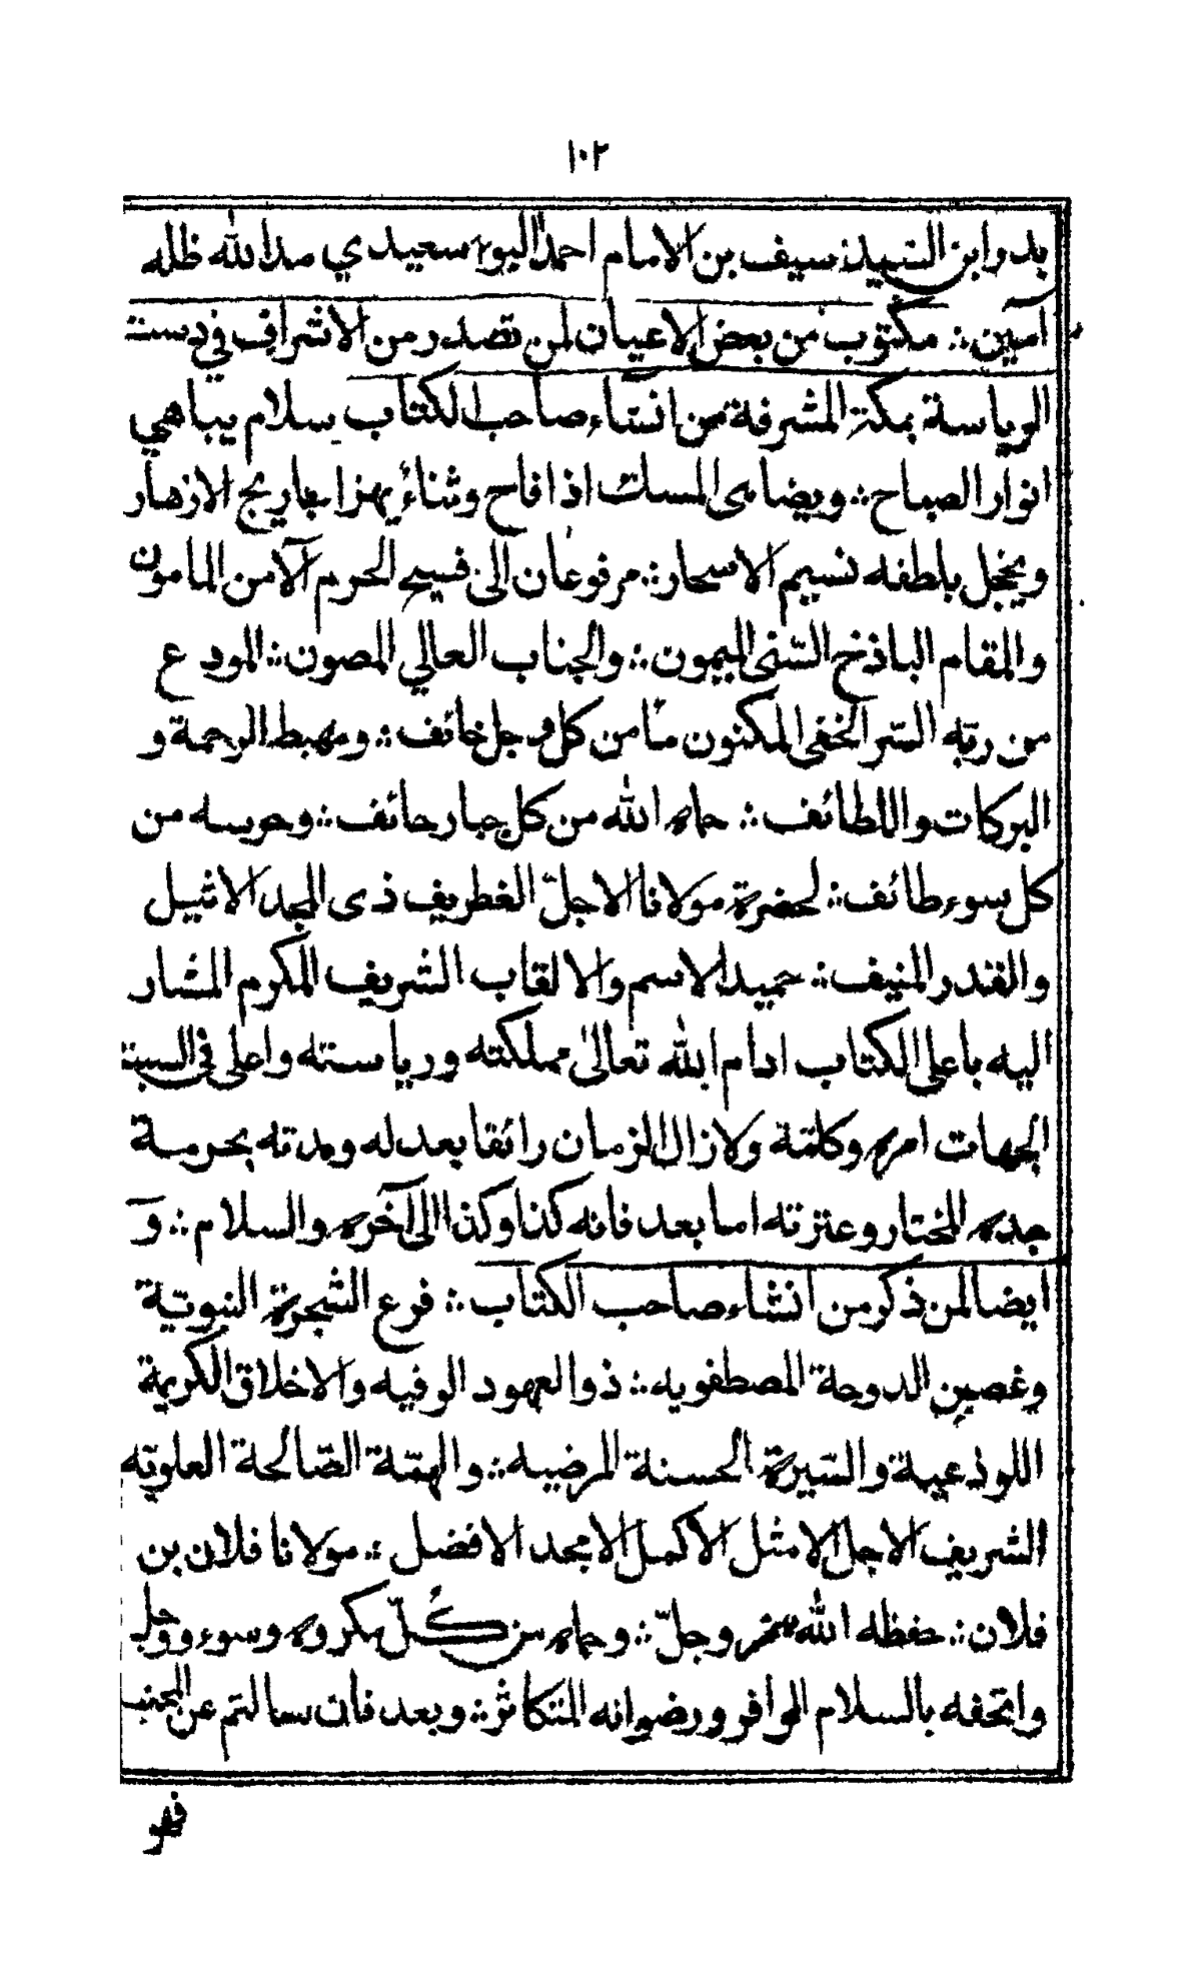 ١٠٢
بدر ابن السيد سيف بن الامام احمد البوسعيدي مد الله ظله
آمين ∴ مكتوب من بعض الاعيان لمن تصدر من الاشراف في دست
الرياسة بمكة المشرفة من انشاء صاحب الكتاب سلام يباهي
انوار الصباح ∴ ويضاهى المسك اذا فاح وثناءٌ يهزا باريج الازهار
ويخجل بلطفه نسيم الاسحار ∴ مرفوعان الى فسيح الحرم الآمن المامون
والمقام الباذخ السّنى الميمون ∴ والجناب العالي المصون ∴ المودع
من ربّه السّر الخفى المكنون مأمن كل وجل خائف ∴ ومهبط الرحمة و
البركات واللطائف ∴ حماه الله من كل جبار حائف ∴ وحرسه من
كل سوء طائف ∴ لحضرة مولانا الاجلّ الغطريف ذى المجد الاثيل
والقدر المنيف ∴ حميد الاسم والالقاب الشريف المكرم المشار
اليه باعلى الكتاب ادام الله تعالى مملكته ورياسته واعلى في الست
الجهات امره وكلمته ولا زال الزمان رائقا بعدله ومدته بحرمة
جده المختار وعترته اما بعد فانه كذا وكذا الى آخره والسلام ∴ و
ايضا لمن ذكر من انشاء صاحب الكتاب ∴ فرع الشجرة النبويّة
وغصن الدوحة المصطفويه ∴ ذو العهود الوفيه والاخلاق الكريمة
اللوذعية والسّيرة الحسنة المرضيه ∴ والهمّة الصّالحة العلويّه
الشريف الاجل الامثل الاكمل الامجد الافضل ∴ مولانا فلان بن
فلان ∴ حفظه الله عز وجلّ ∴ وحماه من كُلّ مكروه وسوء ووجل
واتحفه بالسلام الوافر ورضوانه المتكاثر ∴ وبعد فان سالتم عن المحب
فهو